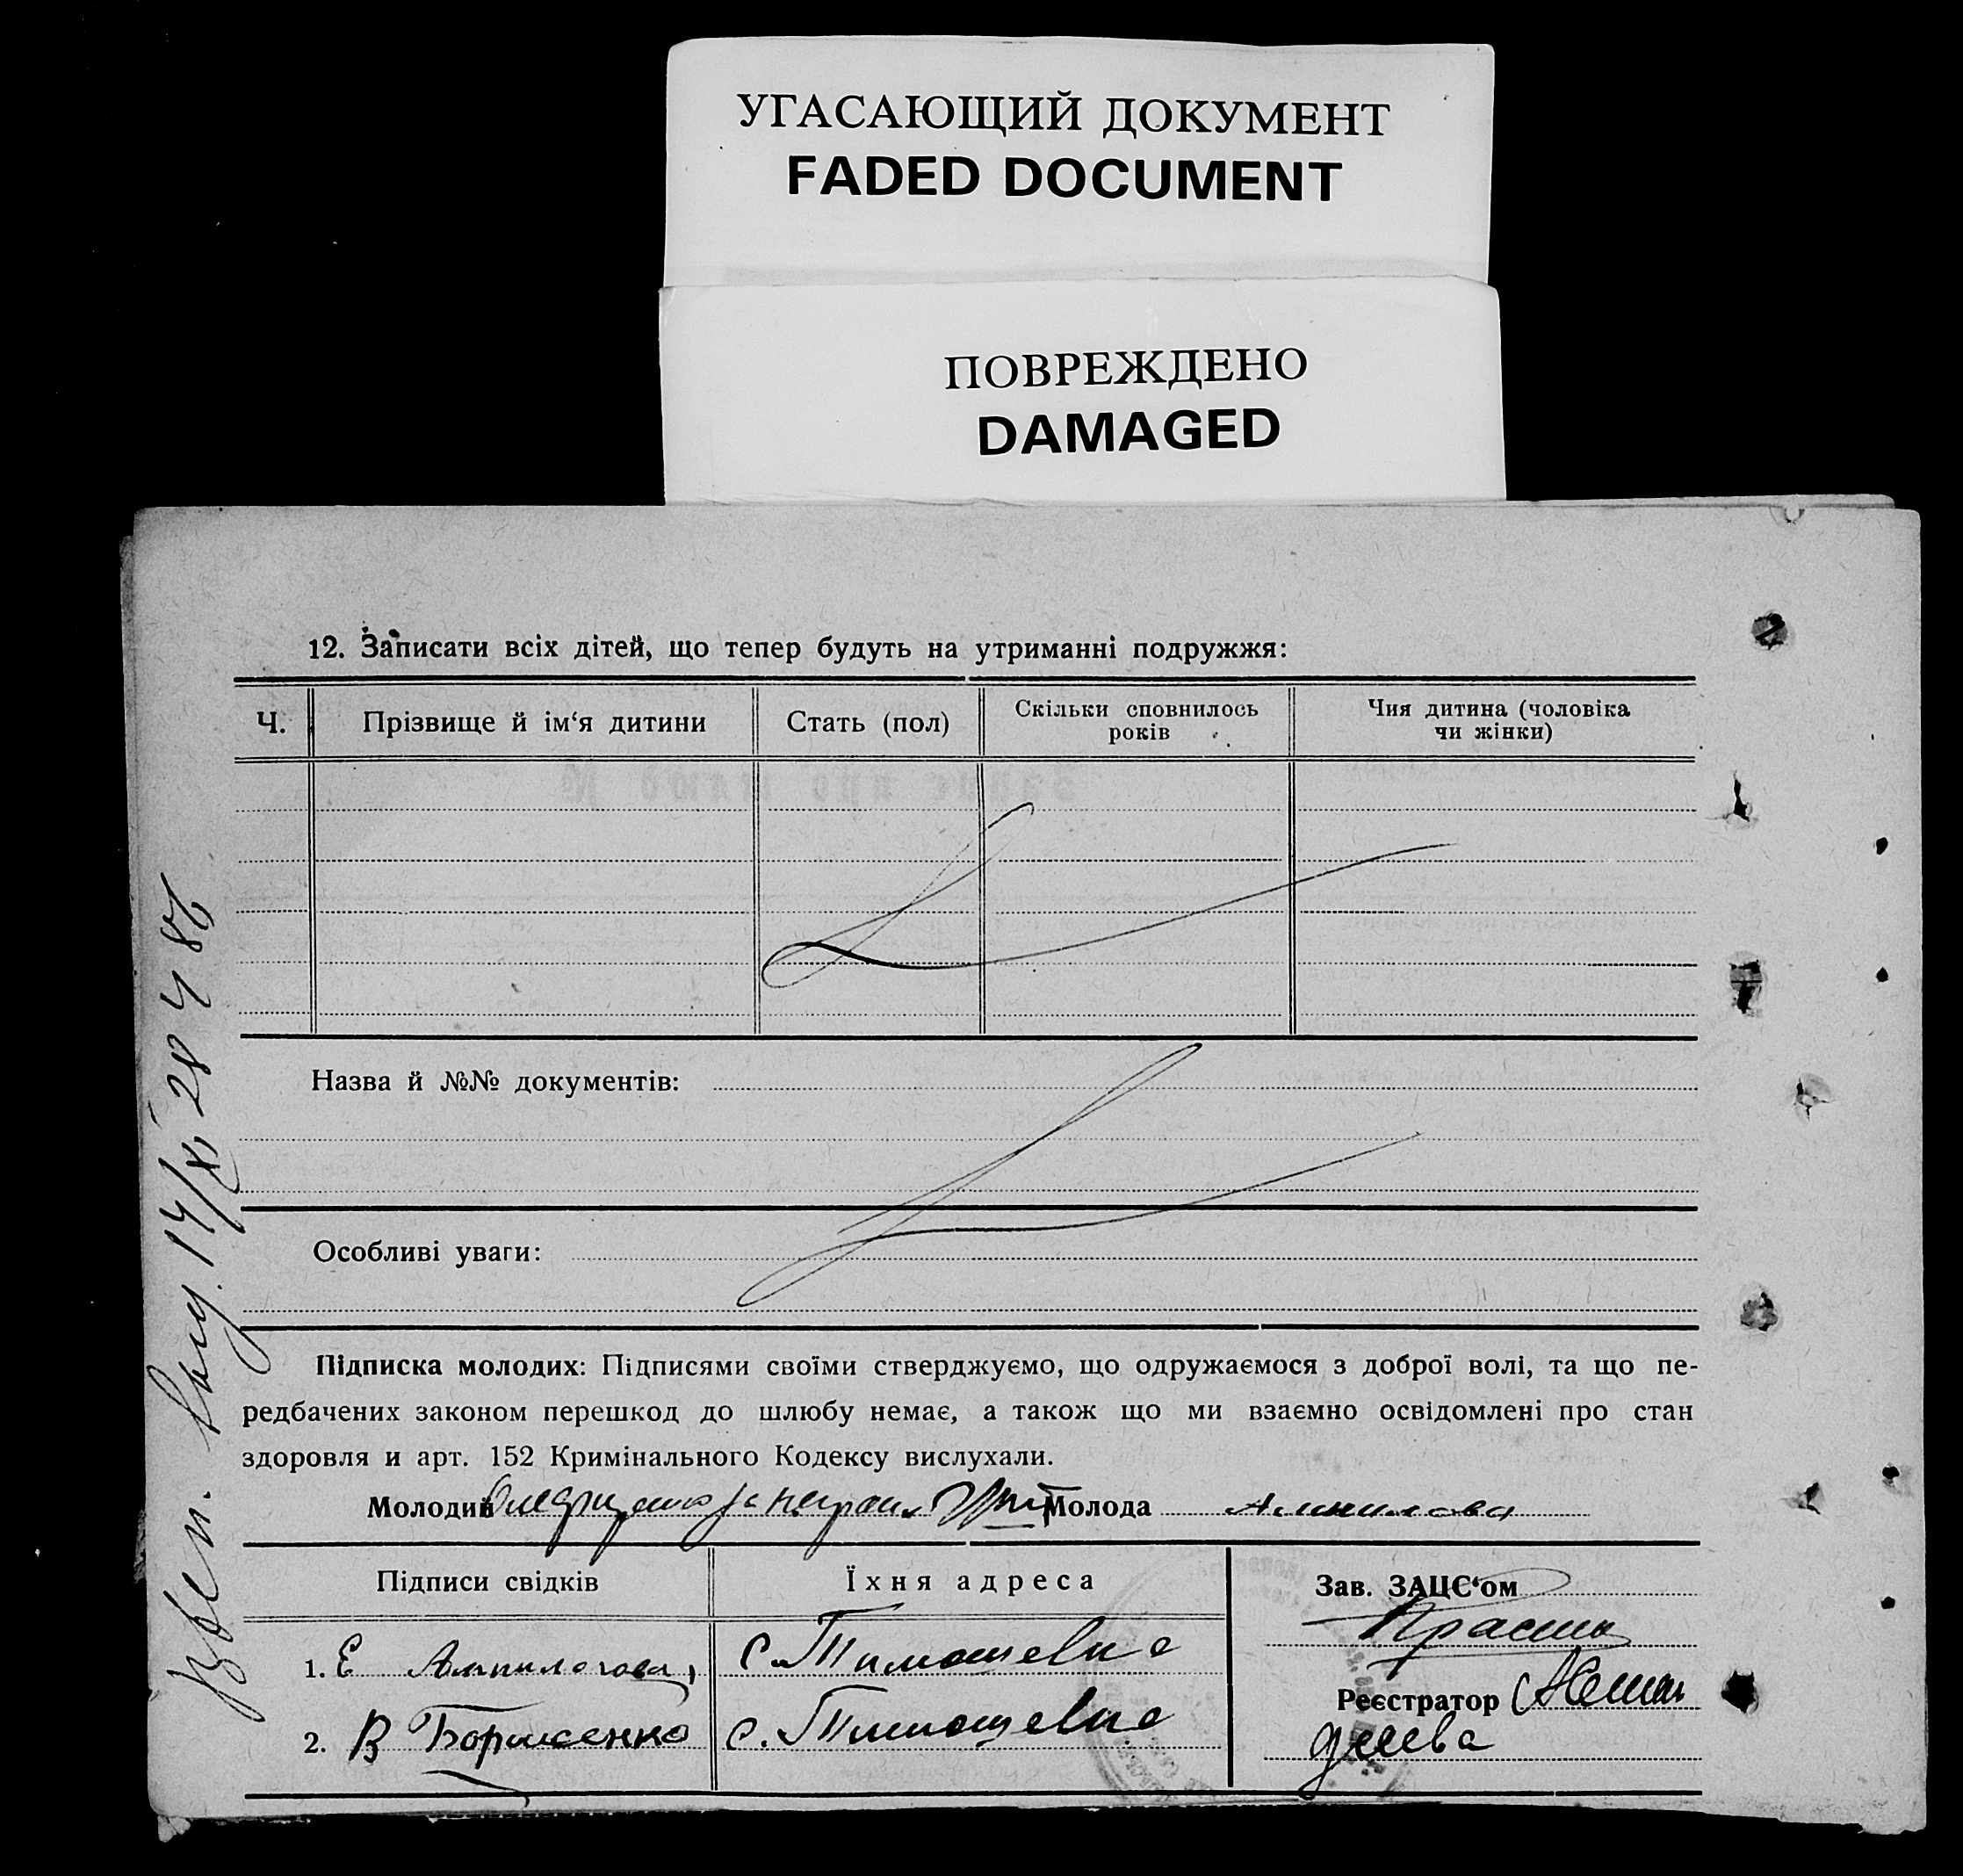 УГАСАЮЩИЙ ДОКУМЕНТ
FADED DOCUMENT
ПОВРЕЖДЕНО
DAMAGED
12. Записати всіх дітей, що тепер будуть на утриманні подружжя:
Ч. Прізвище й ім‘я дитини Стать (пол) Скільки сповнилось років Чия дитина (чоловіка чи жінки)
Назва й №№ документів:
Особливі уваги:
Підписка молодих: Підписями своїми стверджуємо, що одружаємося з доброї волі, та що пе-
редбачених законом перешкод до шлюбу немає, а також що ми взаємно освідомлені про стан
здоровля и арт. 152 Кримінального Кодексу вислухали.
Молодий Молода
Підписи свідків Їхня адреса Зав. ЗАЦС‘ом
1. Е с. Тимошевка
Реєстратор
2. В Борисенко с. Тимошевка
14/XI 28